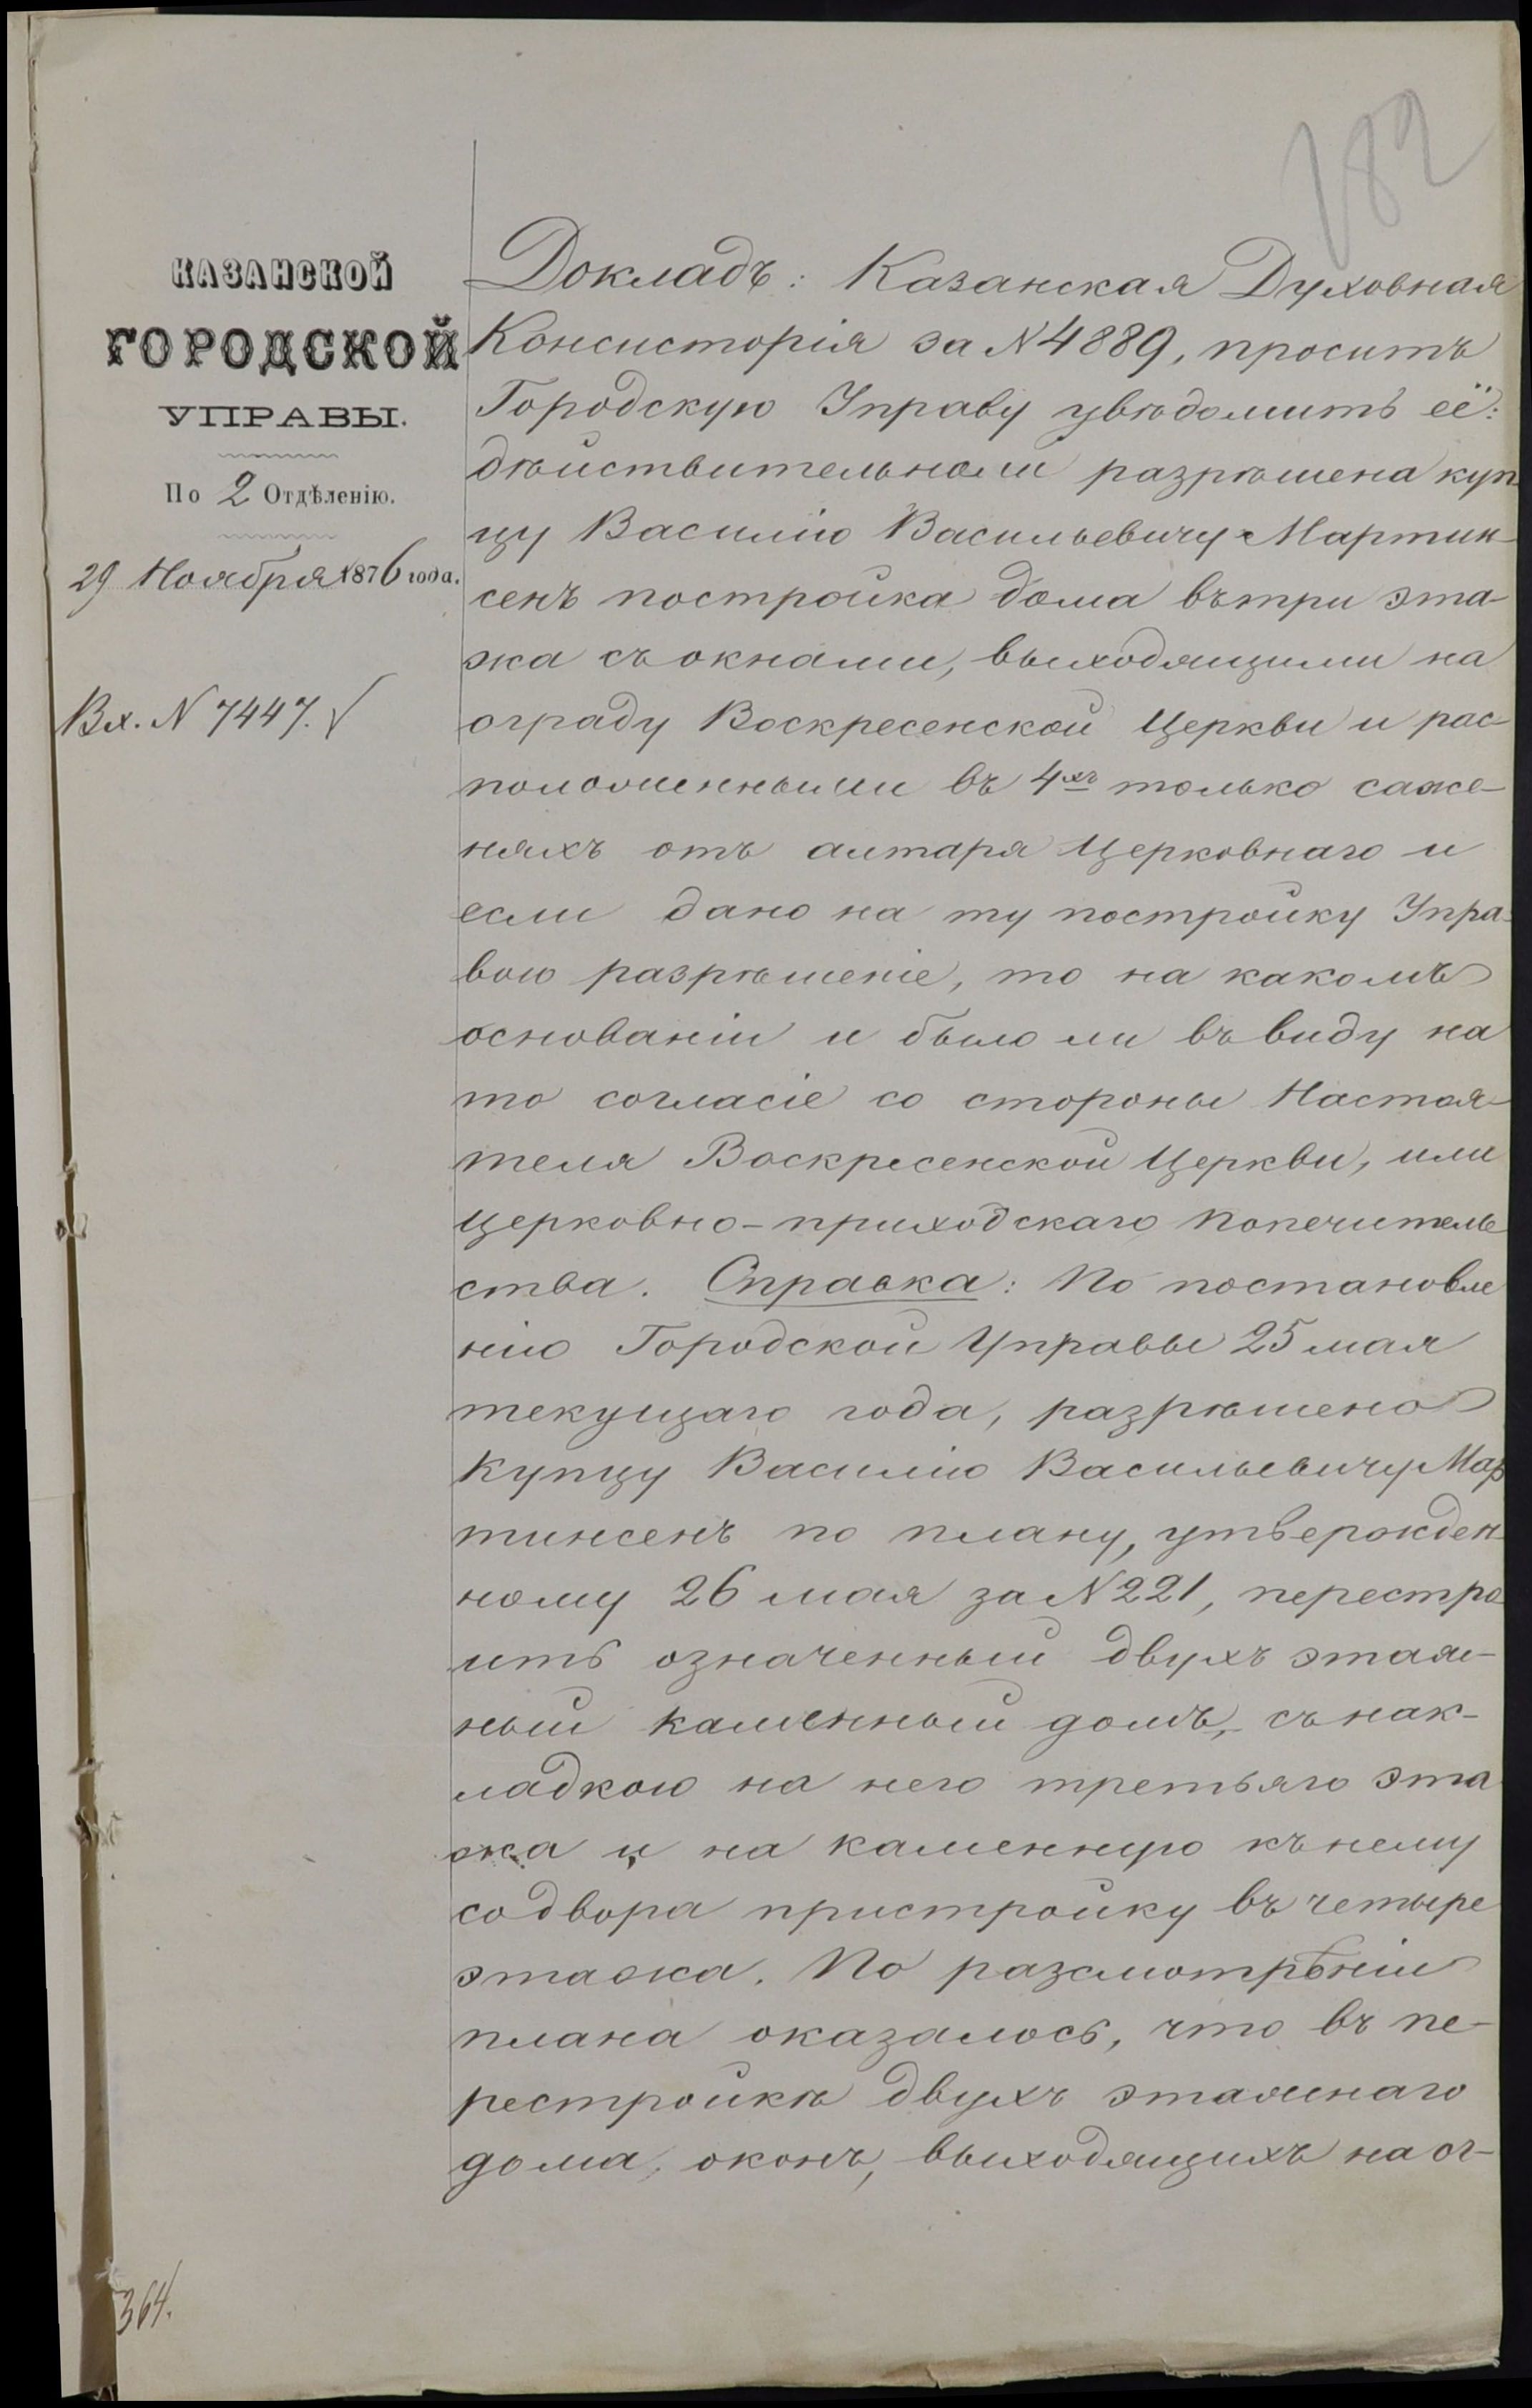 182
КАЗАНСКОЙ
ГОРОДСКОЙ
УПРАВЫ.
По 2 Отдѣленію.
29 Ноября 1876 года.
Вх. № 7447.
Докладъ: Казанская Духовная
Консисторія за № 4889, проситъ
Городскую Управу увѣдомить её:
дѣйствительноли разрѣшена куп-
цу Василію Васильевичу Мартин-
сенъ постройка дома въ три эта-
жа съ окнами, выходящими на
ограду Воскресенской Церкви и рас-
положенными въ 4хъ только саже-
няхъ отъ алтаря Церковнаго и
если дано на ту постройку Упра-
вою разрѣшеніе, то на какомъ
основаніи и было ли въ виду на
то согласіе со стороны Настоя-
теля Воскресенской Церкви, или
Церковно-приходскаго Попечитель
ства. Справка: По постановле
нію Городской Управы 25 мая
текущаго года, разрѣшено
Купцу Василію Васильевичу Мар
тинсенъ по плану, утвержден-
ному 26 мая за № 221, перестро-
ить означенный двухъ этаж-
ный каменный домъ, съ нак-
ладкою на него третьяго эта
жа и на каменную къ нему
со двора пристройку въ четыре
этажа. По разсмотрѣніи
плана оказалось, что въ пе-
рестройкѣ двухъ этажнаго
дома, оконъ, выходящихъ на ог-
364.